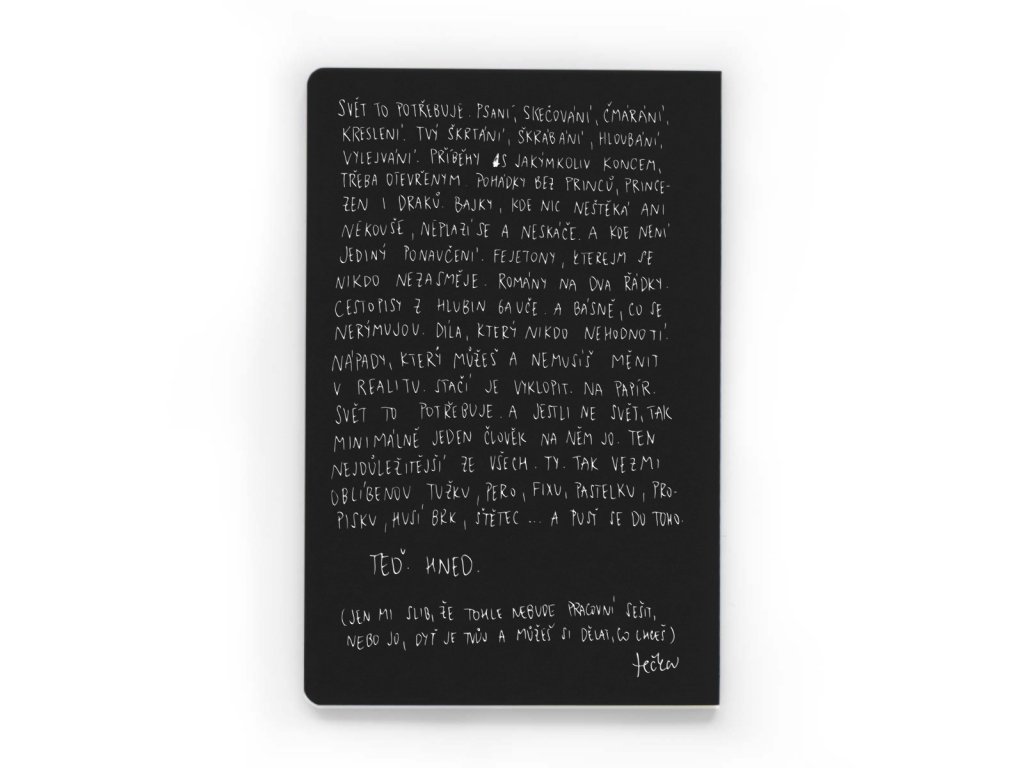 SVĚT TO POTŘEBUJE. PSANÍ, SKEČOVÁNÍ, ČMÁRÁNÍ,
KRESLENÍ. TVÝ ŠKRTÁNÍ, ŠKRÁBÁNÍ, HLOUBÁNÍ,
VYLEJVÁNÍ. PŘÍBĚHY S JAKÝMKOLIV KONCEM,
TŘEBA OTEVŘENÝM. POHÁDKY BEZ PRINCŮ, PRINCE-
ZEN I DRAKŮ. BAJKY, KDE NIC NEŠTĚKÁ ANI
NEKOUŠE, NEPLAZÍ SE A NESKÁČE. A KDE NENÍ
JEDINÝ PONAUČENÍ. FEJETONY, KTEREJM SE
NIKDO NEZASMĚJE. ROMÁNY NA DVA ŘÁDKY.
CESTOPISY Z HLUBIN GAUČE. A BÁSNĚ, CO SE
NERÝMUJOU. DÍLA, KTERÝ NIKDO NEHODNOTÍ.
NÁPADY, KTERÝ MŮŽEŠ A NEMUSÍŠ MĚNIT
V REALITU. STAČÍ JE VYKLOPIT. NA PAPÍR.
SVĚT TO POTŘEBUJE. A JESTLI NE SVĚT, TAK
MINIMÁLNĚ JEDEN ČLOVĚK NA NĚM JO. TEN
NEJDŮLEŽITĚJŠÍ ZE VŠECH. TY. TAK VEZMI
OBLÍBENOU TUŽKU, PERO, FIXU, PASTELKU, PRO-
PISKU, HUSÍ BRK, ŠTĚTEC ... A PUSŤ SE DO TOHO.
TEĎ. HNED.
(JEN MI SLIB, ŽE TOHLE NEBUDE PRACOVNÍ SEŠIT,
NEBO JO, DYŤ JE TVŮJ A MŮŽEŠ SI DĚLAT, CO CHCEŠ)
tečka